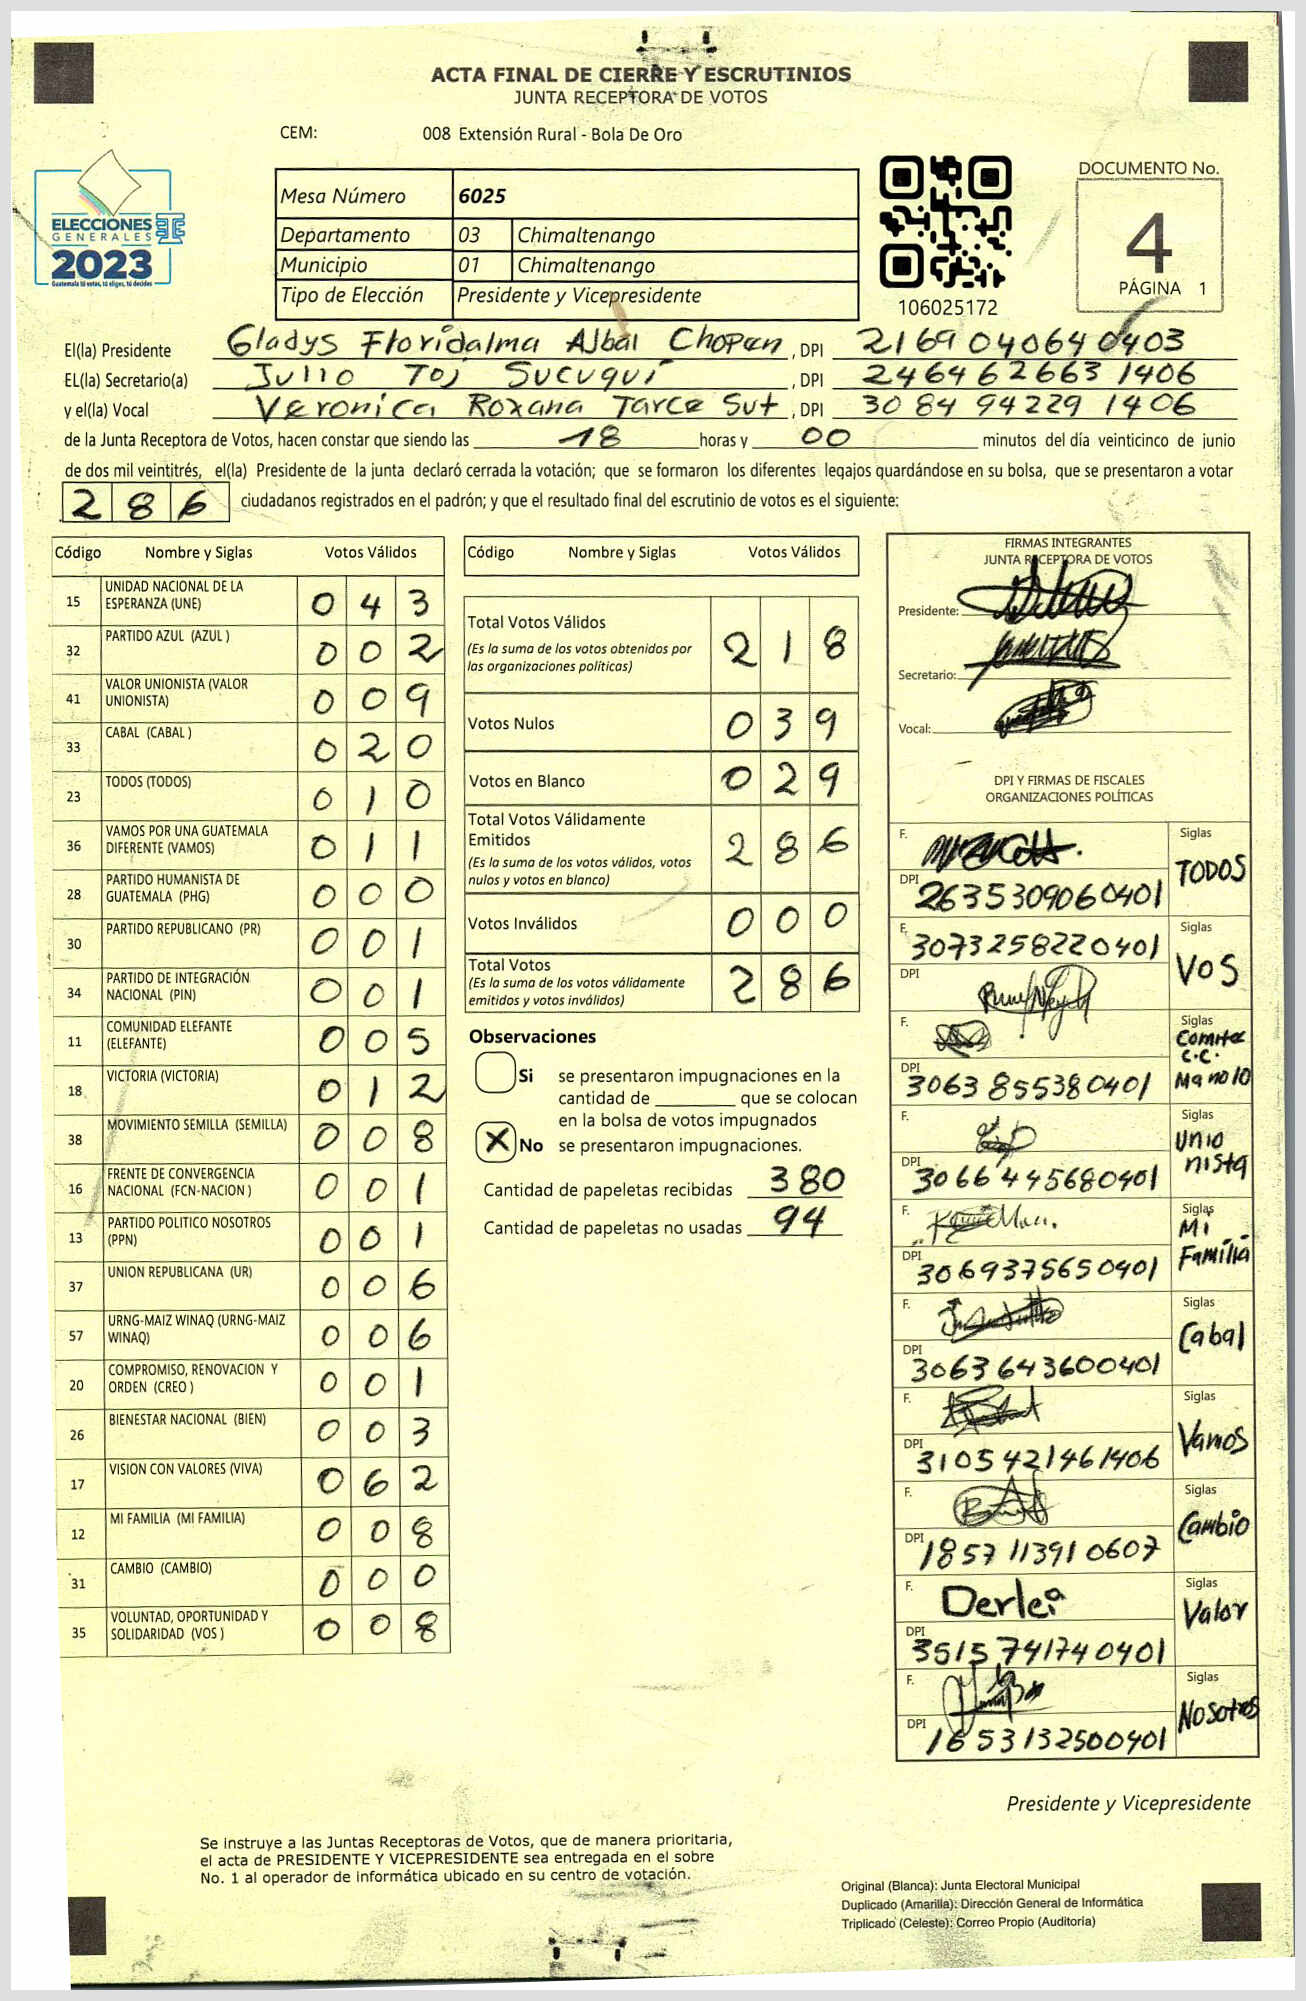 ACTA FINAL DE CIERRE Y ESCRUTINIOS
JUNTA RECEPTORA DE VOTOS
CEM: 008 Extensión Rural - Bola De Oro
ELECCIONES
GENERALES
2023
Guatemala tú votas, tú eliges, tú decides
Mesa Número 6025
Departamento 03 Chimaltenango
Municipio 01 Chimaltenango
Tipo de Elección Presidente y Vicepresidente
106025172
DOCUMENTO No.
4
PÁGINA 1
El(la) Presidente Gladys Floridalma Ajbal Chopen, DPI 2169040640403
EL(la) Secretario(a) Julio Toj Sucuquí, DPI 2464626631406
y el(la) Vocal Veronica Roxana Tarce Sut, DPI 3084942291406
de la Junta Receptora de Votos, hacen constar que siendo las 18 horas y 00 minutos del día veinticinco de junio
de dos mil veintitrés, el(la) Presidente de la junta declaró cerrada la votación; que se formaron los diferentes legajos quardándose en su bolsa, que se presentaron a votar
286 ciudadanos registrados en el padrón; y que el resultado final del escrutinio de votos es el siguiente:
Código Nombre y Siglas Votos Válidos
15 UNIDAD NACIONAL DE LA ESPERANZA (UNE) 043
32 PARTIDO AZUL (AZUL ) 002
41 VALOR UNIONISTA (VALOR UNIONISTA) 009
33 CABAL (CABAL ) 020
23 TODOS (TODOS) 010
36 VAMOS POR UNA GUATEMALA DIFERENTE (VAMOS) 011
28 PARTIDO HUMANISTA DE GUATEMALA (PHG) 000
30 PARTIDO REPUBLICANO (PR) 001
34 PARTIDO DE INTEGRACIÓN NACIONAL (PIN) 001
11 COMUNIDAD ELEFANTE (ELEFANTE) 005
18 VICTORIA (VICTORIA) 012
38 MOVIMIENTO SEMILLA (SEMILLA) 008
16 FRENTE DE CONVERGENCIA NACIONAL (FCN-NACION ) 001
13 PARTIDO POLITICO NOSOTROS (PPN) 001
37 UNION REPUBLICANA (UR) 006
57 URNG-MAIZ WINAQ (URNG-MAIZ WINAQ) 006
20 COMPROMISO, RENOVACION Y ORDEN (CREO ) 001
26 BIENESTAR NACIONAL (BIEN) 003
17 VISION CON VALORES (VIVA) 062
12 MI FAMILIA (MI FAMILIA) 008
31 CAMBIO (CAMBIO) 000
35 VOLUNTAD, OPORTUNIDAD Y SOLIDARIDAD (VOS ) 008
Código Nombre y Siglas Votos Válidos
Total Votos Válidos 218
(Es la suma de los votos obtenidos por
las organizaciones políticas)
Votos Nulos 039
Votos en Blanco 029
Total Votos Válidamente
Emitidos 286
(Es la suma de los votos válidos, votos
nulos y votos en blanco)
Votos Inválidos 000
Total Votos 286
(Es la suma de los votos válidamente
emitidos y votos inválidos)
Observaciones
Si se presentaron impugnaciones en la
cantidad de ________ que se colocan
en la bolsa de votos impugnados
X No se presentaron impugnaciones.
Cantidad de papeletas recibidas 380
Cantidad de papeletas no usadas 94
FIRMAS INTEGRANTES
JUNTA RECEPTORA DE VOTOS
Presidente:
Secretario:
Vocal:
DPI Y FIRMAS DE FISCALES
ORGANIZACIONES POLÍTICAS
F. Siglas TODOS
DPI 2635309060401
F. 3073258220401 Siglas VOS
DPI
F. Siglas Comite C.C. Manolo
DPI 3063855380401
F. Siglas Unionista
DPI 3066445680401
F. Siglas Mi Familia
DPI 3069375650401
F. Siglas Cabal
DPI 3063643600401
F. Siglas Vamos
DPI 3105421461406
F. Siglas Cambio
DPI 1857113910607
F. Derlei Siglas Valor
DPI 3515741740401
F. Siglas Nosotros
DPI 1653132500401
Presidente y Vicepresidente
Se instruye a las Juntas Receptoras de Votos, que de manera prioritaria,
el acta de PRESIDENTE Y VICEPRESIDENTE sea entregada en el sobre
No. 1 al operador de informática ubicado en su centro de votación.
Original (Blanca): Junta Electoral Municipal
Duplicado (Amarilla): Dirección General de Informática
Triplicado (Celeste): Correo Propio (Auditoría)